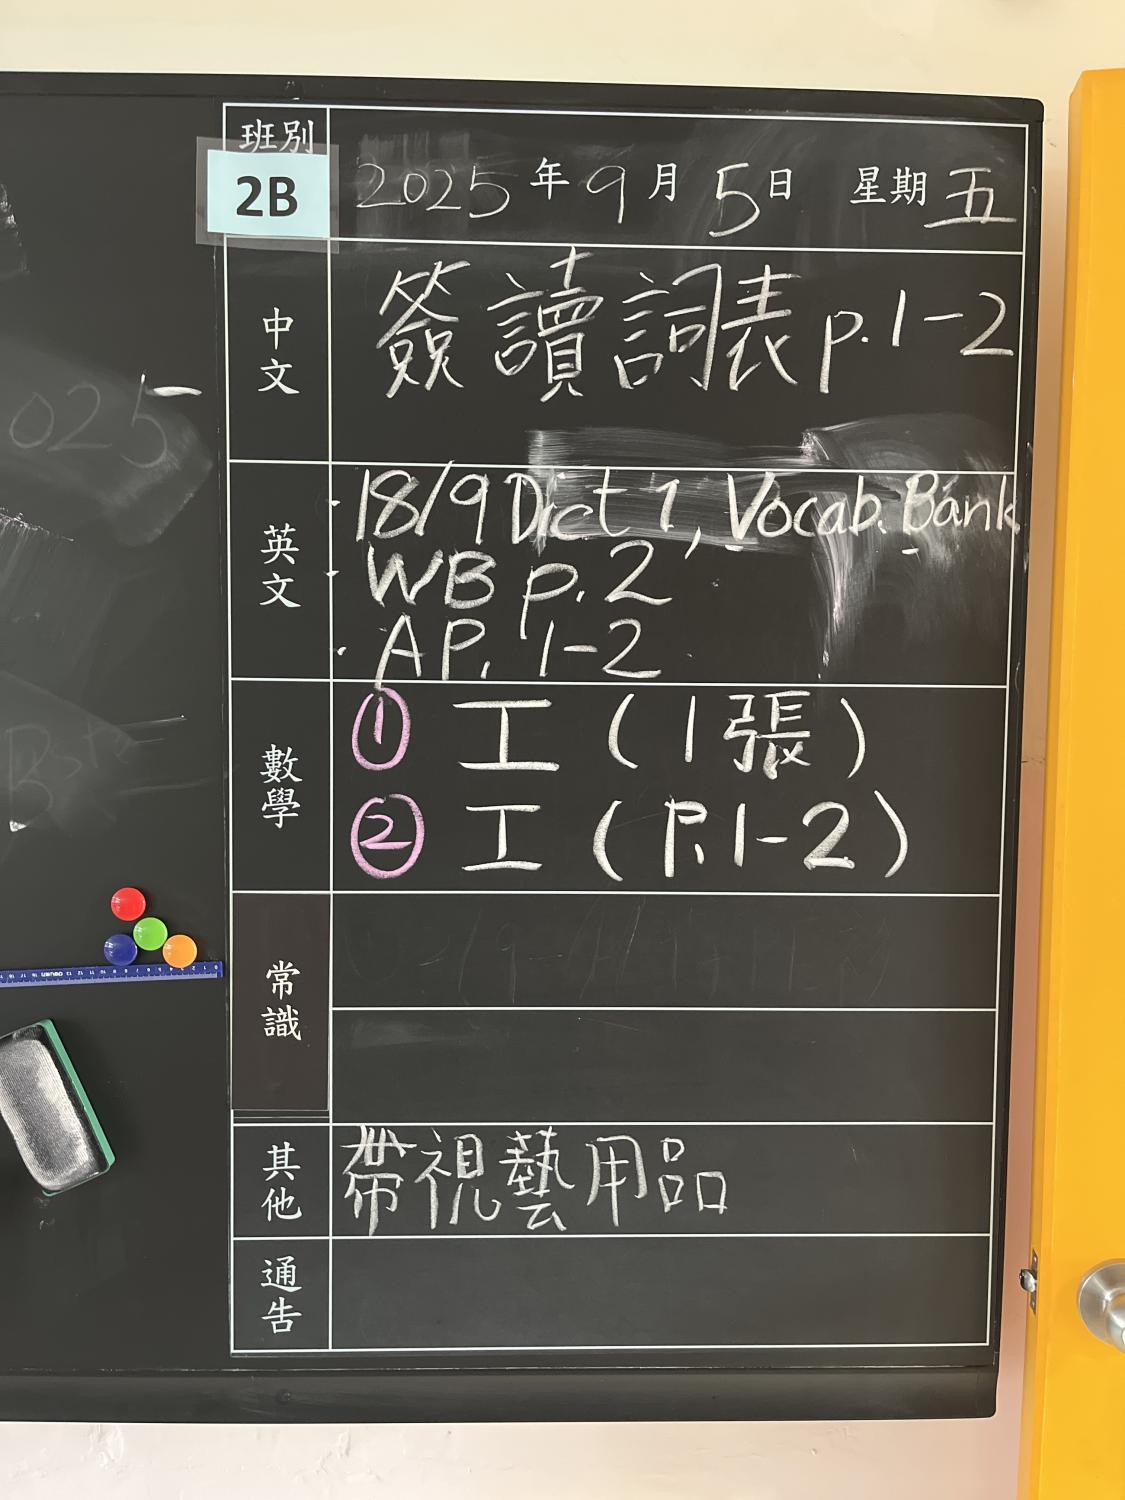 班別
2B
2025年9月5日 星期五
中文
簽讀詞表p.1-2
英文
·18/9 Dict 1, Vocab. Bank
·WB p.2
·AP. 1-2
數學
① 工(1張)
② 工(P.1-2)
常識
其他
帶視藝用品
通告
025